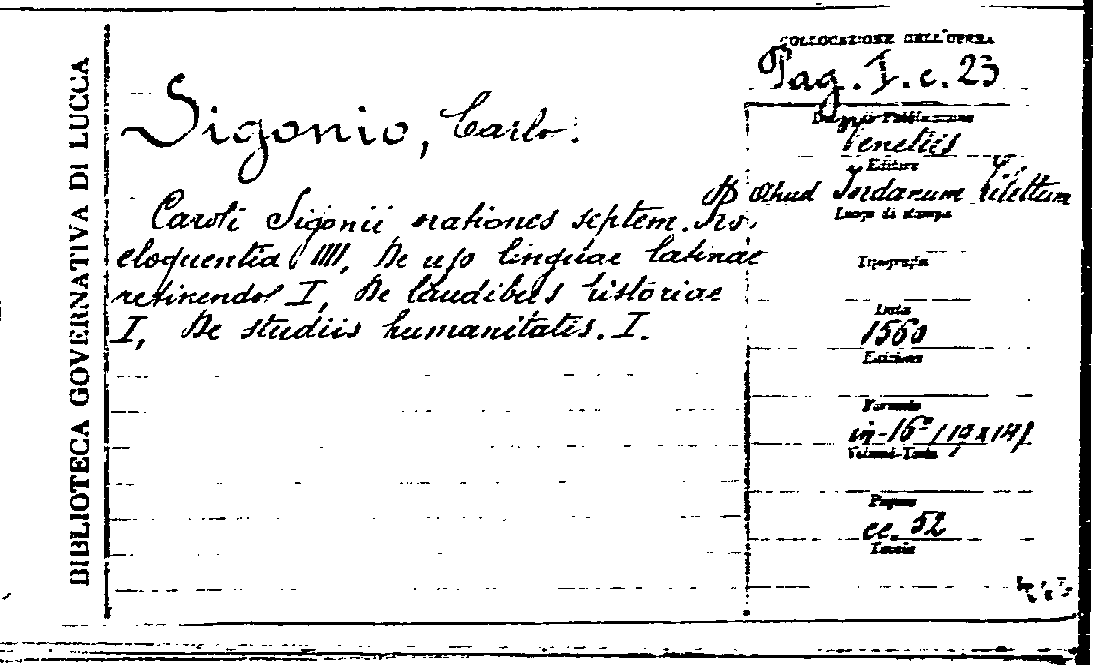 BIBLIOTECA GOVERNATIVA DI LUCCA
COLLOCAZIONE DELL'OPERA
Pag. I. c. 23
Sigonio, Carlo.
Caroli Sigonii orationes septem. Pro
eloquentia IIII, De usu linguae latinae
retinendae I, De laudibus historiae
I, De studiis humanitatis. I.
Luogo Pubblicazione
Venetiis
Editore
Apud Iordanum Ziletum
Luogo di stampa
Tipografia
Data
1560
Edizione
Formato
in-16° (19x14)
Volumi-Tomi
Pagine
cc. 52
Tavole